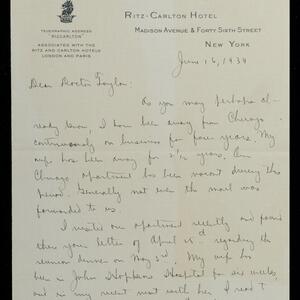 RITZ-CARLTON HOTEL
MADISON AVENUE & FORTY SIXTH STREET
NEW YORK
TELEGRAPHIC ADDRESS
"RIZCARLTON"
ASSOCIATED WITH THE
RITZ AND CARLTON HOTELS
LONDON AND PARIS
June 16, 1934
Dear Doctor Taylor:
As you may perhaps al-
ready know, I have been away from Chicago
continuously on business for four years. My
wife has been away for 2 1/2 years. Our
Chicago Apartment has been vacant during this
period. Generally not even the mail was
forwarded to us.
I visited our apartment recently and found
there your letter of April regarding the
reunion dinner on May 3rd. My wife has
been in Johns Hopkins Hospital for six weeks,
and on my recent visit with her, I